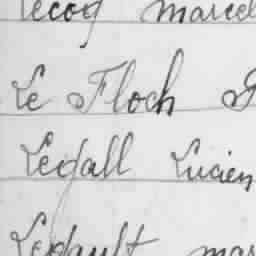 Lecoq Marcel
Le Floch
Legall Lucien
Legault mar